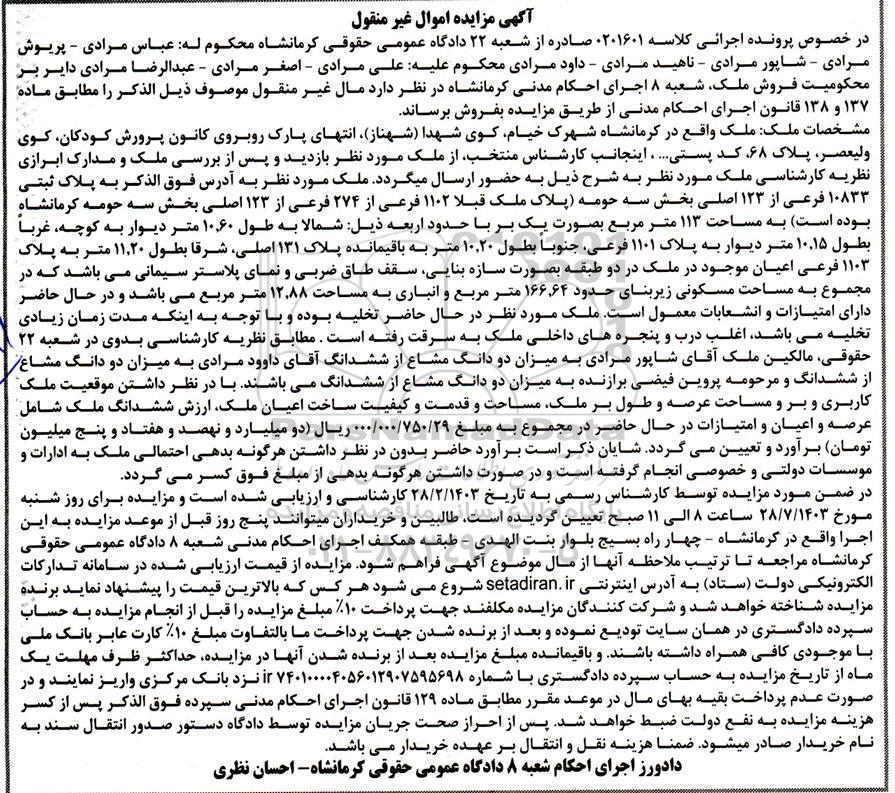 آگهی مزایده اموال غیر منقول
در خصوص پرونده اجرائی کلاسه ۰۲۰۱۶۰۱ صادره از شعبه ۲۲ دادگاه عمومی حقوقی کرمانشاه محکوم له: عباس مرادی - پریوش
مرادی - شاپور مرادی - ناهید مرادی - داود مرادی محکوم علیه: علی مرادی - اصغر مرادی - عبدالرضا مرادی دایر بر
محکومیت فروش ملک، شعبه ۸ اجرای احکام مدنی کرمانشاه در نظر دارد مال غیر منقول موصوف ذیل الذکر را مطابق ماده
۱۳۷ و ۱۳۸ قانون اجرای احکام مدنی از طریق مزایده بفروش برساند.
مشخصات ملک: ملک واقع در کرمانشاه شهرک خیام، کوی شهدا (شهناز)، انتهای پارک روبروی کانون پرورش کودکان، کوی
ولیعصر، پلاک ۶۸، کد پستی... ، اینجانب کارشناس منتخب، از ملک مورد نظر بازدید و پس از بررسی ملک و مدارک ابرازی
نظریه کارشناسی ملک مورد نظر به شرح ذیل به حضور ارسال میگردد. ملک مورد نظر به آدرس فوق الذکر به پلاک ثبتی
۱۰۸۳۳ فرعی از ۱۲۳ اصلی بخش سه حومه (پلاک ملک قبلا ۱۱۰۲ فرعی از ۲۷۴ فرعی از ۱۲۳ اصلی بخش سه حومه کرمانشاه
بوده است) به مساحت ۱۱۳ متر مربع بصورت یک بر با حدود اربعه ذیل: شمالا به طول ۱۰,۶۰ متر دیوار به کوچه، غرباً
بطول ۱۰,۱۵ متر دیوار به پلاک ۱۱۰۱ فرعی، جنوباً بطول ۱۰,۲۰ متر به باقیمانده پلاک ۱۳۱ اصلی، شرقا بطول ۱۱,۲۰ متر به پلاک
۱۱۰۳ فرعی اعیان موجود در ملک در دو طبقه بصورت سازه بنایی، سقف طاق ضربی و نمای پلاستر سیمانی می باشد که در
مجموع به مساحت مسکونی زیربنای حدود ۱۶۶,۶۴ متر مربع و انباری به مساحت ۱۲,۸۸ متر مربع می باشد و در حال حاضر
دارای امتیازات و انشعابات معمول است. ملک مورد نظر در حال حاضر تخلیه بوده و با توجه به اینکه مدت زمان زیادی
تخلیه می باشد، اغلب درب و پنجره های داخلی ملک به سرقت رفته است . مطابق نظریه کارشناسی بدوی در شعبه ۲۲
حقوقی، مالکین ملک آقای شاپور مرادی به میزان دو دانگ مشاع از ششدانگ آقای داوود مرادی به میزان دو دانگ مشاع
از ششدانگ و مرحومه پروین فیضی برازنده به میزان دو دانگ مشاع از ششدانگ می باشند. با در نظر داشتن موقعیت ملک
کاربری و بر و مساحت عرصه و طول بر ملک، مساحت و قدمت و کیفیت ساخت اعیان ملک، ارزش ششدانگ ملک شامل
عرصه و اعیان و امتیازات در حال حاضر در مجموع به مبلغ ۰۰۰/۰۰۰/۷۵۰/۲۹ ریال (دو میلیارد و نهصد و هفتاد و پنج میلیون
تومان) برآورد و تعیین می گردد. شایان ذکر است برآورد حاضر بدون در نظر داشتن هرگونه بدهی احتمالی ملک به ادارات و
موسسات دولتی و خصوصی انجام گرفته است و در صورت داشتن هرگونه بدهی از مبلغ فوق کسر می گردد.
در ضمن مورد مزایده توسط کارشناس رسمی به تاریخ ۲۸/۲/۱۴۰۳ کارشناسی و ارزیابی شده است و مزایده برای روز شنبه
مورخ ۲۸/۷/۱۴۰۳ ساعت ۸ الی ۱۱ صبح تعیین گردیده است. طالبین و خریداران میتوانند پنج روز قبل از موعد مزایده به این
اجرا واقع در کرمانشاه - چهار راه بسیج بلوار بنت الهدی - طبقه همکف اجرای احکام مدنی شعبه ۸ دادگاه عمومی حقوقی
کرمانشاه مراجعه تا ترتیب ملاحظه آنها از مال موضوع آگهی فراهم شود. مزایده از قیمت ارزیابی شده در سامانه تدارکات
الکترونیکی دولت (ستاد) به آدرس اینترنتی setadiran.ir شروع می شود هر کس که بالاترین قیمت را پیشنهاد نماید برنده
مزایده شناخته خواهد شد و شرکت کنندگان مزایده مکلفند جهت پرداخت ۱۰٪ مبلغ مزایده را قبل از انجام مزایده به حساب
سپرده دادگستری در همان سایت تودیع نموده و بعد از برنده شدن جهت پرداخت ما بالتفاوت مبلغ ۱۰٪ کارت عابر بانک ملی
با موجودی کافی همراه داشته باشند. و باقیمانده مبلغ مزایده بعد از برنده شدن آنها در مزایده، حداکثر ظرف مهلت یک
ماه از تاریخ مزایده به حساب سپرده دادگستری با شماره ir ۷۴۰۱۰۰۰۰۴۰۵۶۰۱۲۹۰۷۵۹۵۶۹۸ نزد بانک مرکزی واریز نمایند و در
صورت عدم پرداخت بقیه بهای مال در موعد مقرر مطابق ماده ۱۲۹ قانون اجرای احکام مدنی سپرده فوق الذکر پس از کسر
هزینه مزایده به نفع دولت ضبط خواهد شد. پس از احراز صحت جریان مزایده توسط دادگاه دستور صدور انتقال سند به
نام خریدار صادر میشود. ضمنا هزینه نقل و انتقال بر عهده خریدار می باشد.
دادورز اجرای احکام شعبه ۸ دادگاه عمومی حقوقی کرمانشاه- احسان نظری
ParsNamadData
پایگاه اطلاع رسانی مناقصه و مزایده
۰۲۱-۸۸۳۴۹۶۷۰-۵